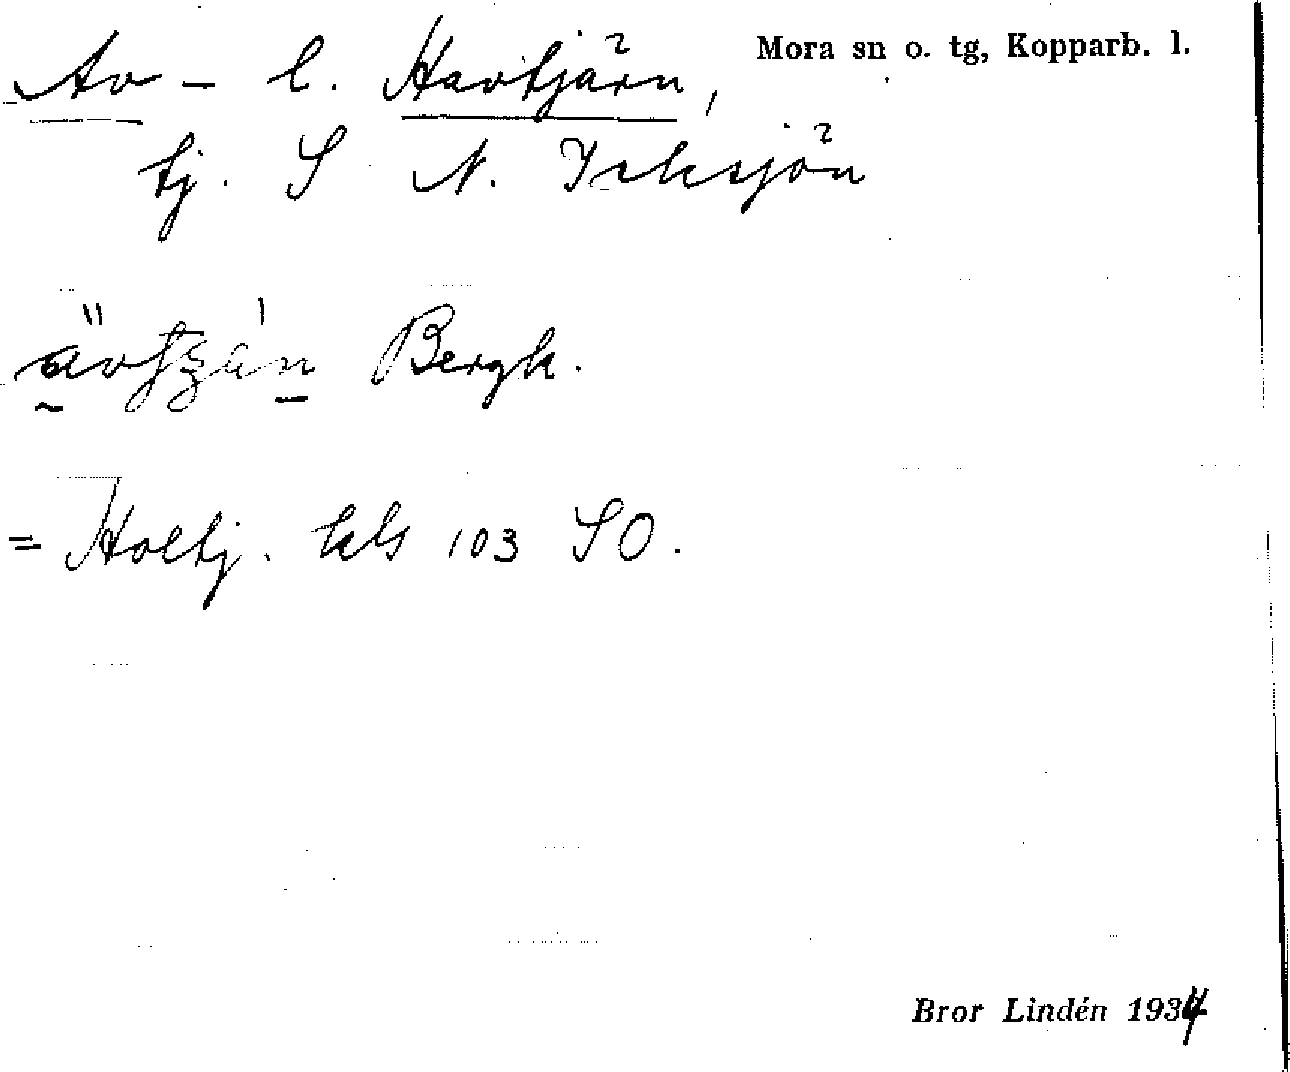 Av- l. Havtjärn, Mora sn o. tg, Kopparb. l.
tj. S N. Isksjön
Bergk.
= Holtj. kls 103 SO.
Bror Lindén 1934